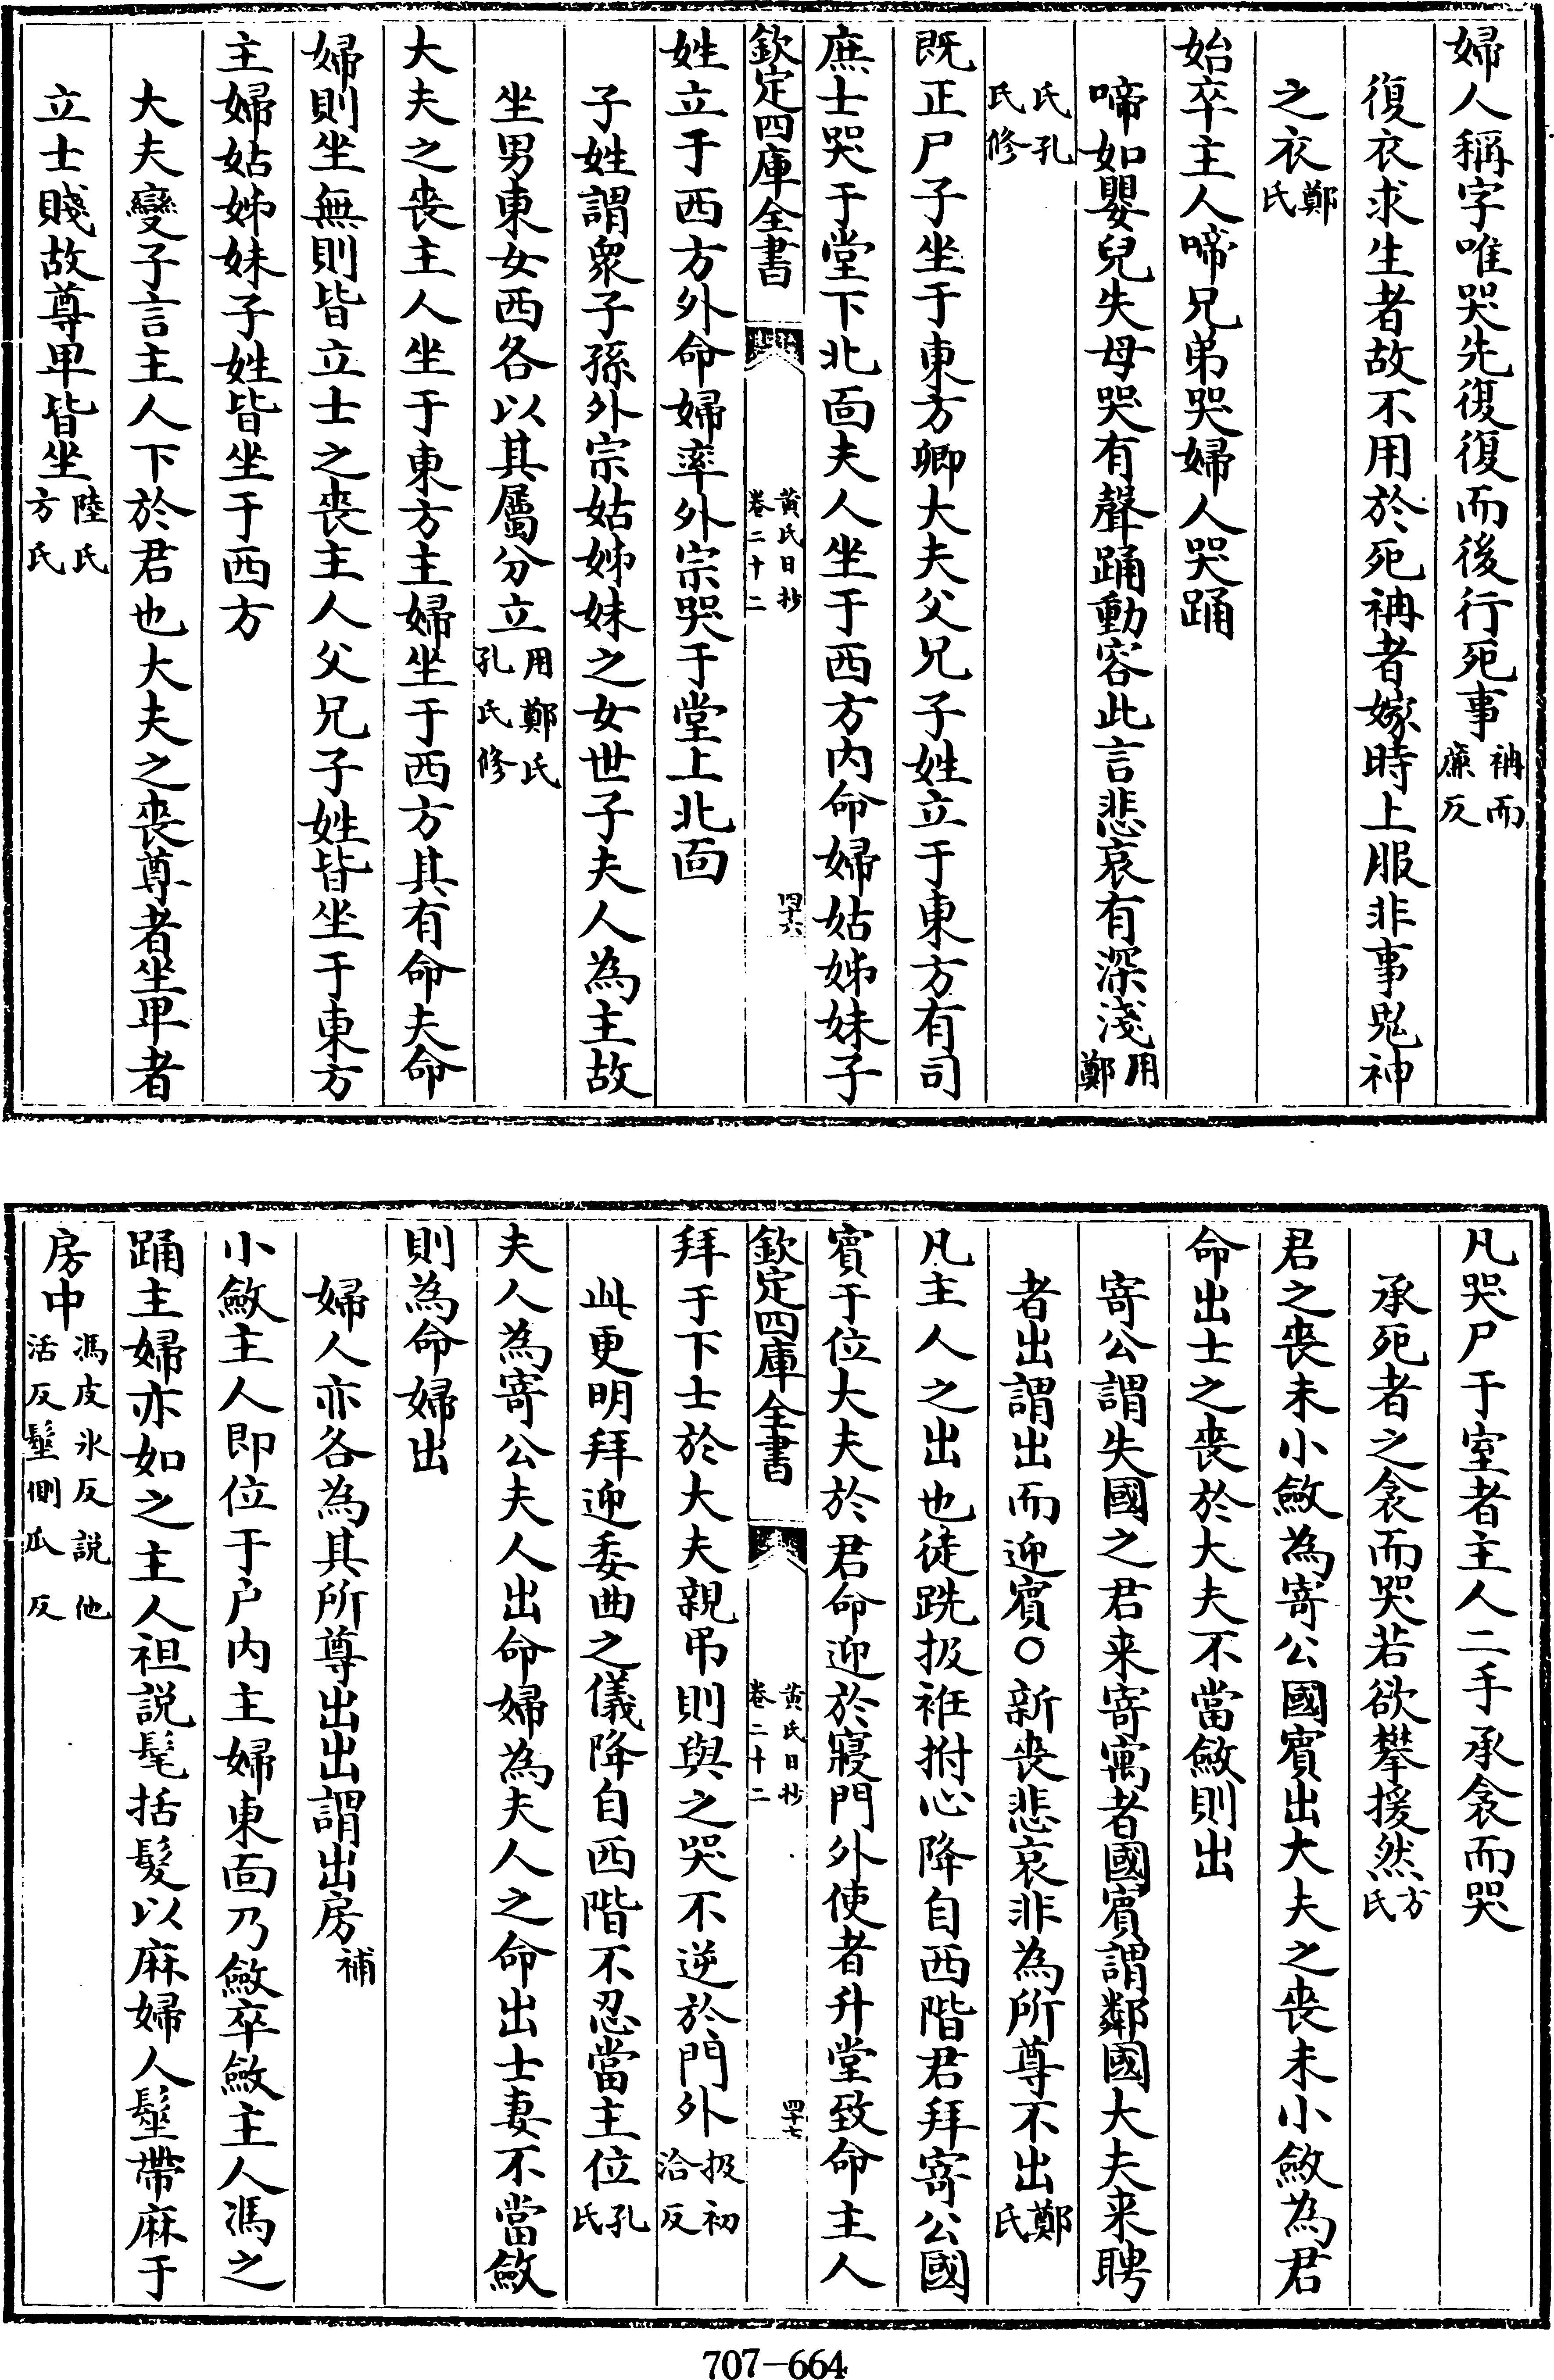 婦人稱字唯哭先復復而後行死事袡而廉反
復衣求生者故不用於死袡者嫁時上服非事鬼神
之衣鄭氏
始卒主人啼兄弟哭婦人哭踊
啼如嬰兒失母哭有聲踊動容此言悲哀有深淺用鄭
氏孔氏修
既正尸子坐于東方卿大夫父兄子姓立于東方有司
庶士哭于堂下北面夫人坐于西方内命婦姑姊妹子
欽定四庫全書 黄氏日抄卷二十二 四十六
姓立于西方外命婦率外宗哭于堂上北面
子姓謂衆子孫外宗姑姊妹之女世子夫人為主故
坐男東女西各以其屬分立用鄭氏孔氏修
大夫之喪主人坐于東方主婦坐于西方其有命夫命
婦則坐無則皆立士之喪主人父兄子姓皆坐于東方
主婦姑姊妹子姓皆坐于西方
大夫變子言主人下於君也大夫之喪尊者坐卑者
立士賤故尊卑皆坐陸氏方氏
凡哭尸于室者主人二手承衾而哭
承死者之衾而哭若欲攀援然方氏
君之喪未小斂為寄公國賓出大夫之喪未小斂為君
命出士之喪於大夫不當斂則出
寄公謂失國之君来寄寓者國賓謂鄰國大夫来聘
者出謂出而迎賓○新喪悲哀非為所尊不出鄭氏
凡主人之出也徒跣扱衽拊心降自西階君拜寄公國
賓于位大夫於君命迎於寢門外使者升堂致命主人
欽定四庫全書 黄氏日抄卷二十二 四十七
拜于下士於大夫親弔則與之哭不逆於門外扱初洽反
此更明拜迎委曲之儀降自西階不忍當主位孔氏
夫人為寄公夫人出命婦為夫人之命出士妻不當斂
則為命婦出
婦人亦各為其所尊出出謂出房補
小斂主人即位于户内主婦東面乃斂卒斂主人馮之
踊主婦亦如之主人袒説髦括髮以麻婦人髽帶麻于
房中馮皮氷反説他活反髽側瓜反
707-664